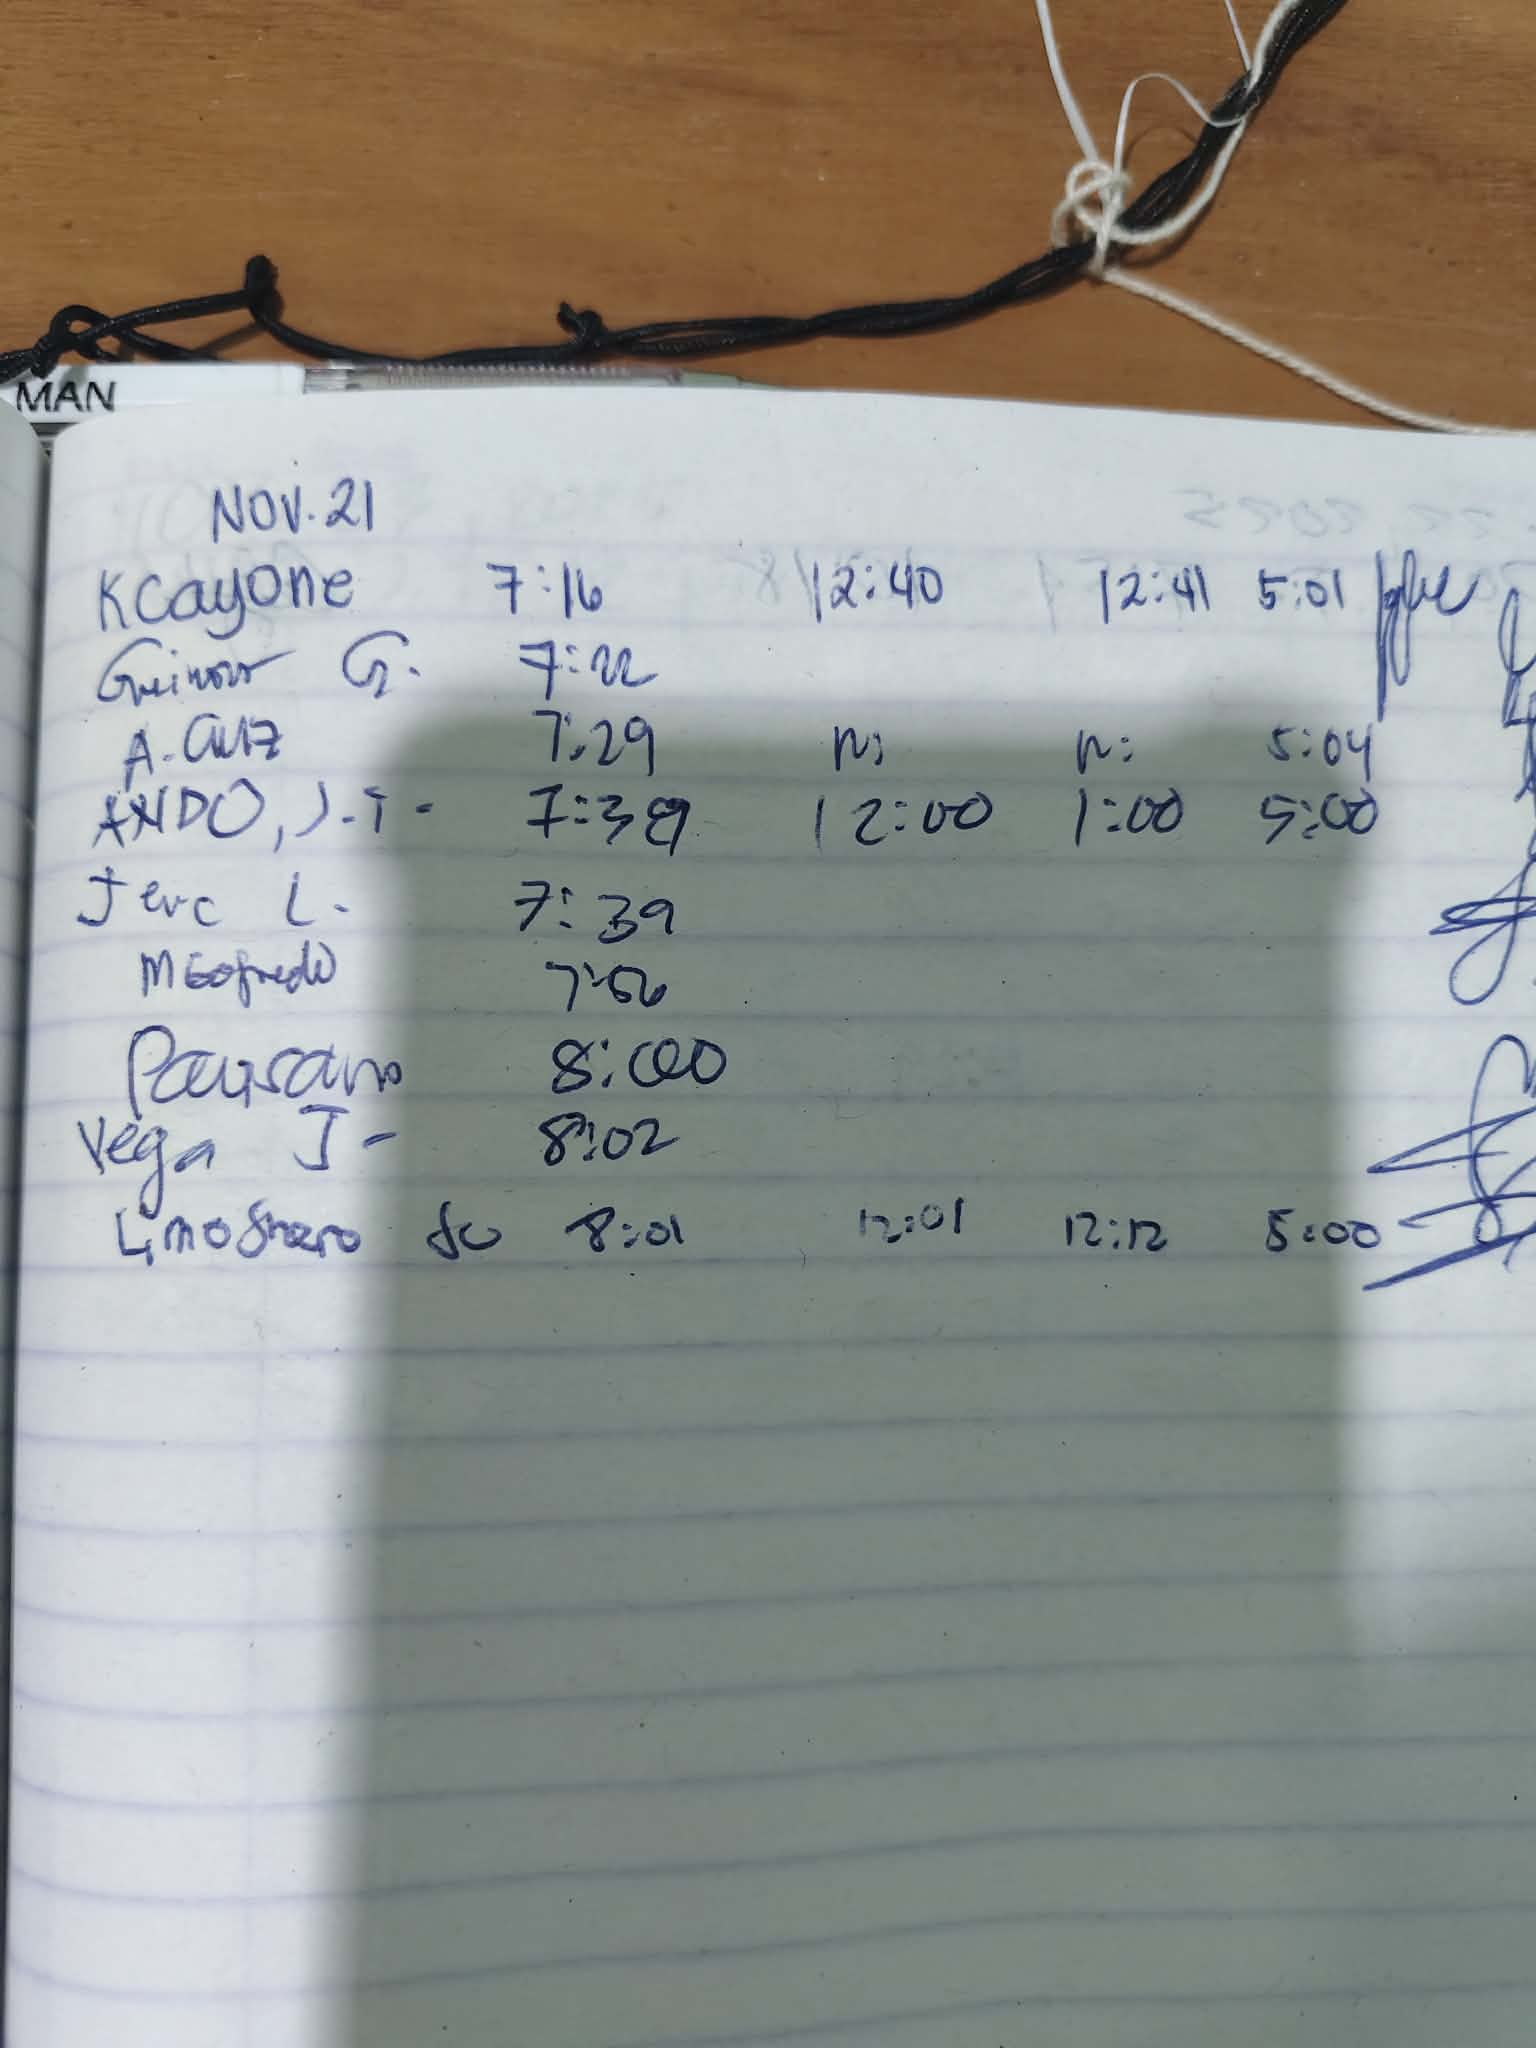 MAN
NOV. 21
KCayOne 7:16 12:40 12:41 5:01
G. 7:22
A. 7:29 n: n: 5:04
ANDO, J.T. 7:39 12:00 1:00 5:00
Jerc L. 7:39
7:56
8:00
Vega J- 8:02
8:01 12:01 12:12 5:00